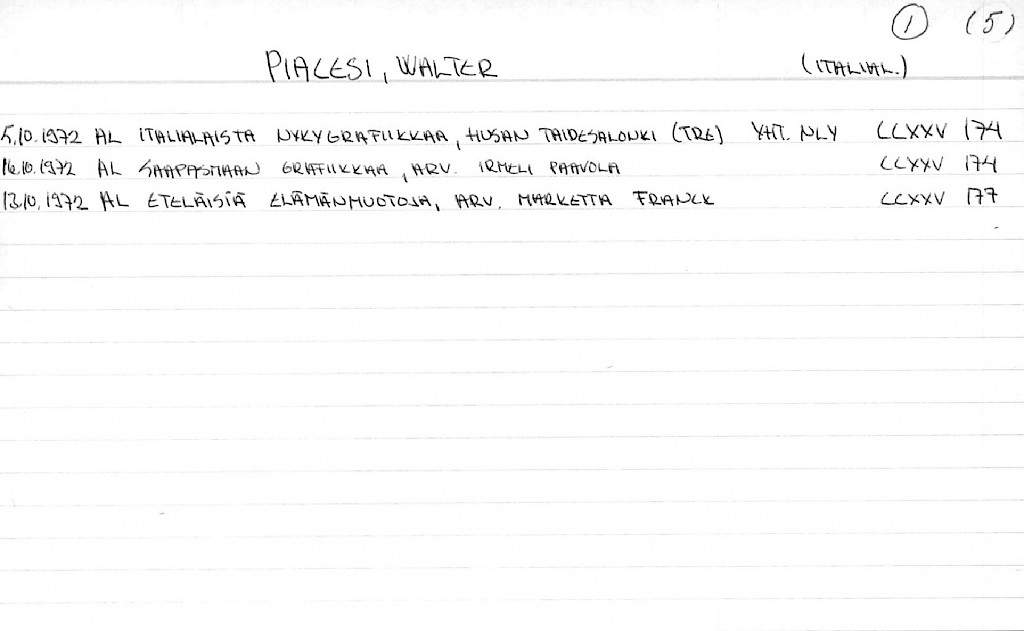 1 (5)
PIACESI, WALTER (ITALIAL.)
5.10.1972 AL ITALIALAISTA NYKYGRAFIIKKAA, HUSAN TAIDESALONKI (TRE) YHT. NLY CCXXV 174
16.10.1972 AL SAAPASMAAN GRAFIIKKAA, ARV. IRMELI PAAVOLA CCXXV 174
13.10.1972 AL ETELÄISIÄ ELÄMÄNMUOTOJA, ARV. MARKETTA FRANCK CCXXV 177